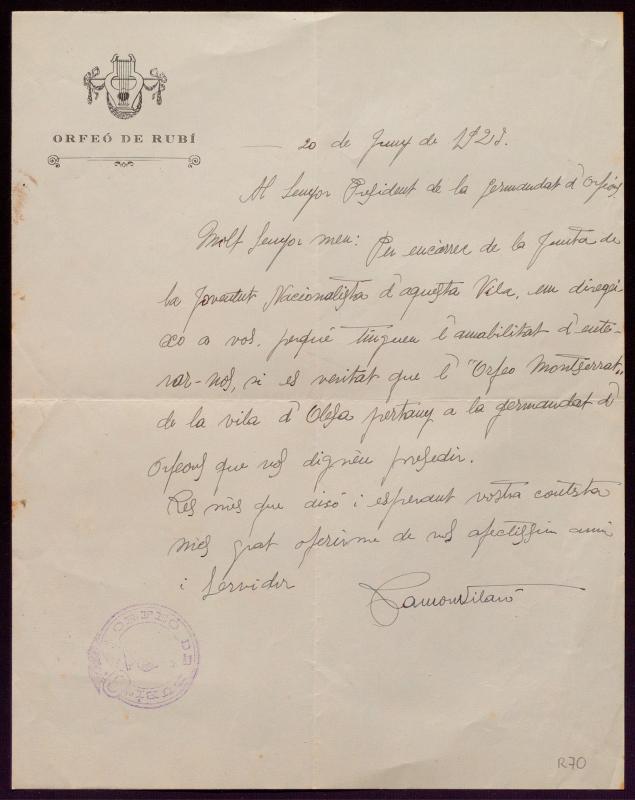 ORFEÓ DE RUBÍ
20 de Juny de 1923.
Al Senyor President de la germandat d'Orfeóns
Molt Senyor meu: Per encárrec de la Junta de
la Joventut Nacionalista d'aquesta Vila, em diregei-
xo a vos, perqué tingueu l'amabilitat d'ente-
rar-nos, si es veritat que l' "Orfeo Montserrat"
de la vila d'Olesa pertany a la germandat d'
Orfeons que vos digneu presedir.
Res més que aixó i esperant vostra contesta
mes grat oferirme de vos afectissim amic
i servidor
Ramon Vilaró
ORFEÓ DE RUBÍ
R70